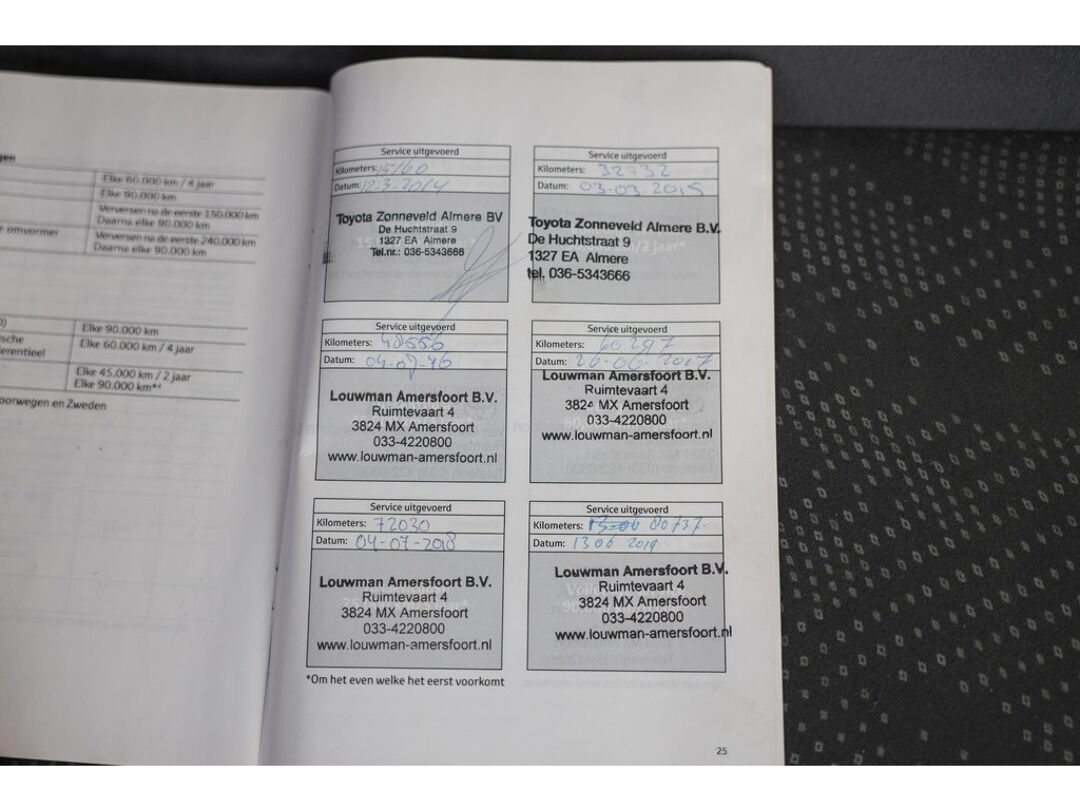 gen
Elke 60.000 km / 4 jaar
Elke 90.000 km
Verversen na de eerste 150.000 km
Daarna elke 90.000 km
e omvormer
Verversen na de eerste 240.000 km
Daarna elke 90.000 km
Elke 90.000 km
ische
Elke 60.000 km / 4 jaar
erentieel
Elke 45.000 km / 2 jaar
Elke 90.000 km**
oorwegen en Zweden
Service uitgevoerd
Kilometers: 15160
Datum: 12.3-2014
Toyota Zonneveld Almere BV
De Huchtstraat 9
1327 EA Almere
Tel.nr.: 036-5343666
Service uitgevoerd
Kilometers: 32732
Datum: 03-03-2015
Toyota Zonneveld Almere B.V.
De Huchtstraat 9
1327 EA Almere
tel. 036-5343666
Service uitgevoerd
Kilometers: 48556
Datum: 04-08-16
Louwman Amersfoort B.V.
Ruimtevaart 4
3824 MX Amersfoort
033-4220800
www.louwman-amersfoort.nl
Service uitgevoerd
Kilometers: 60297
Datum: 26-06-2017
Louwman Amersfoort B.V.
Ruimtevaart 4
3824 MX Amersfoort
033-4220800
www.louwman-amersfoort.nl
Service uitgevoerd
Kilometers: 72030
Datum: 04-07-2018
Louwman Amersfoort B.V.
Ruimtevaart 4
3824 MX Amersfoort
033-4220800
www.louwman-amersfoort.nl
Service uitgevoerd
Kilometers: 13-06 80737.
Datum: 13 06 2019
Louwman Amersfoort B.V.
Ruimtevaart 4
3824 MX Amersfoort
033-4220800
www.louwman-amersfoort.nl
*Om het even welke het eerst voorkomt
25